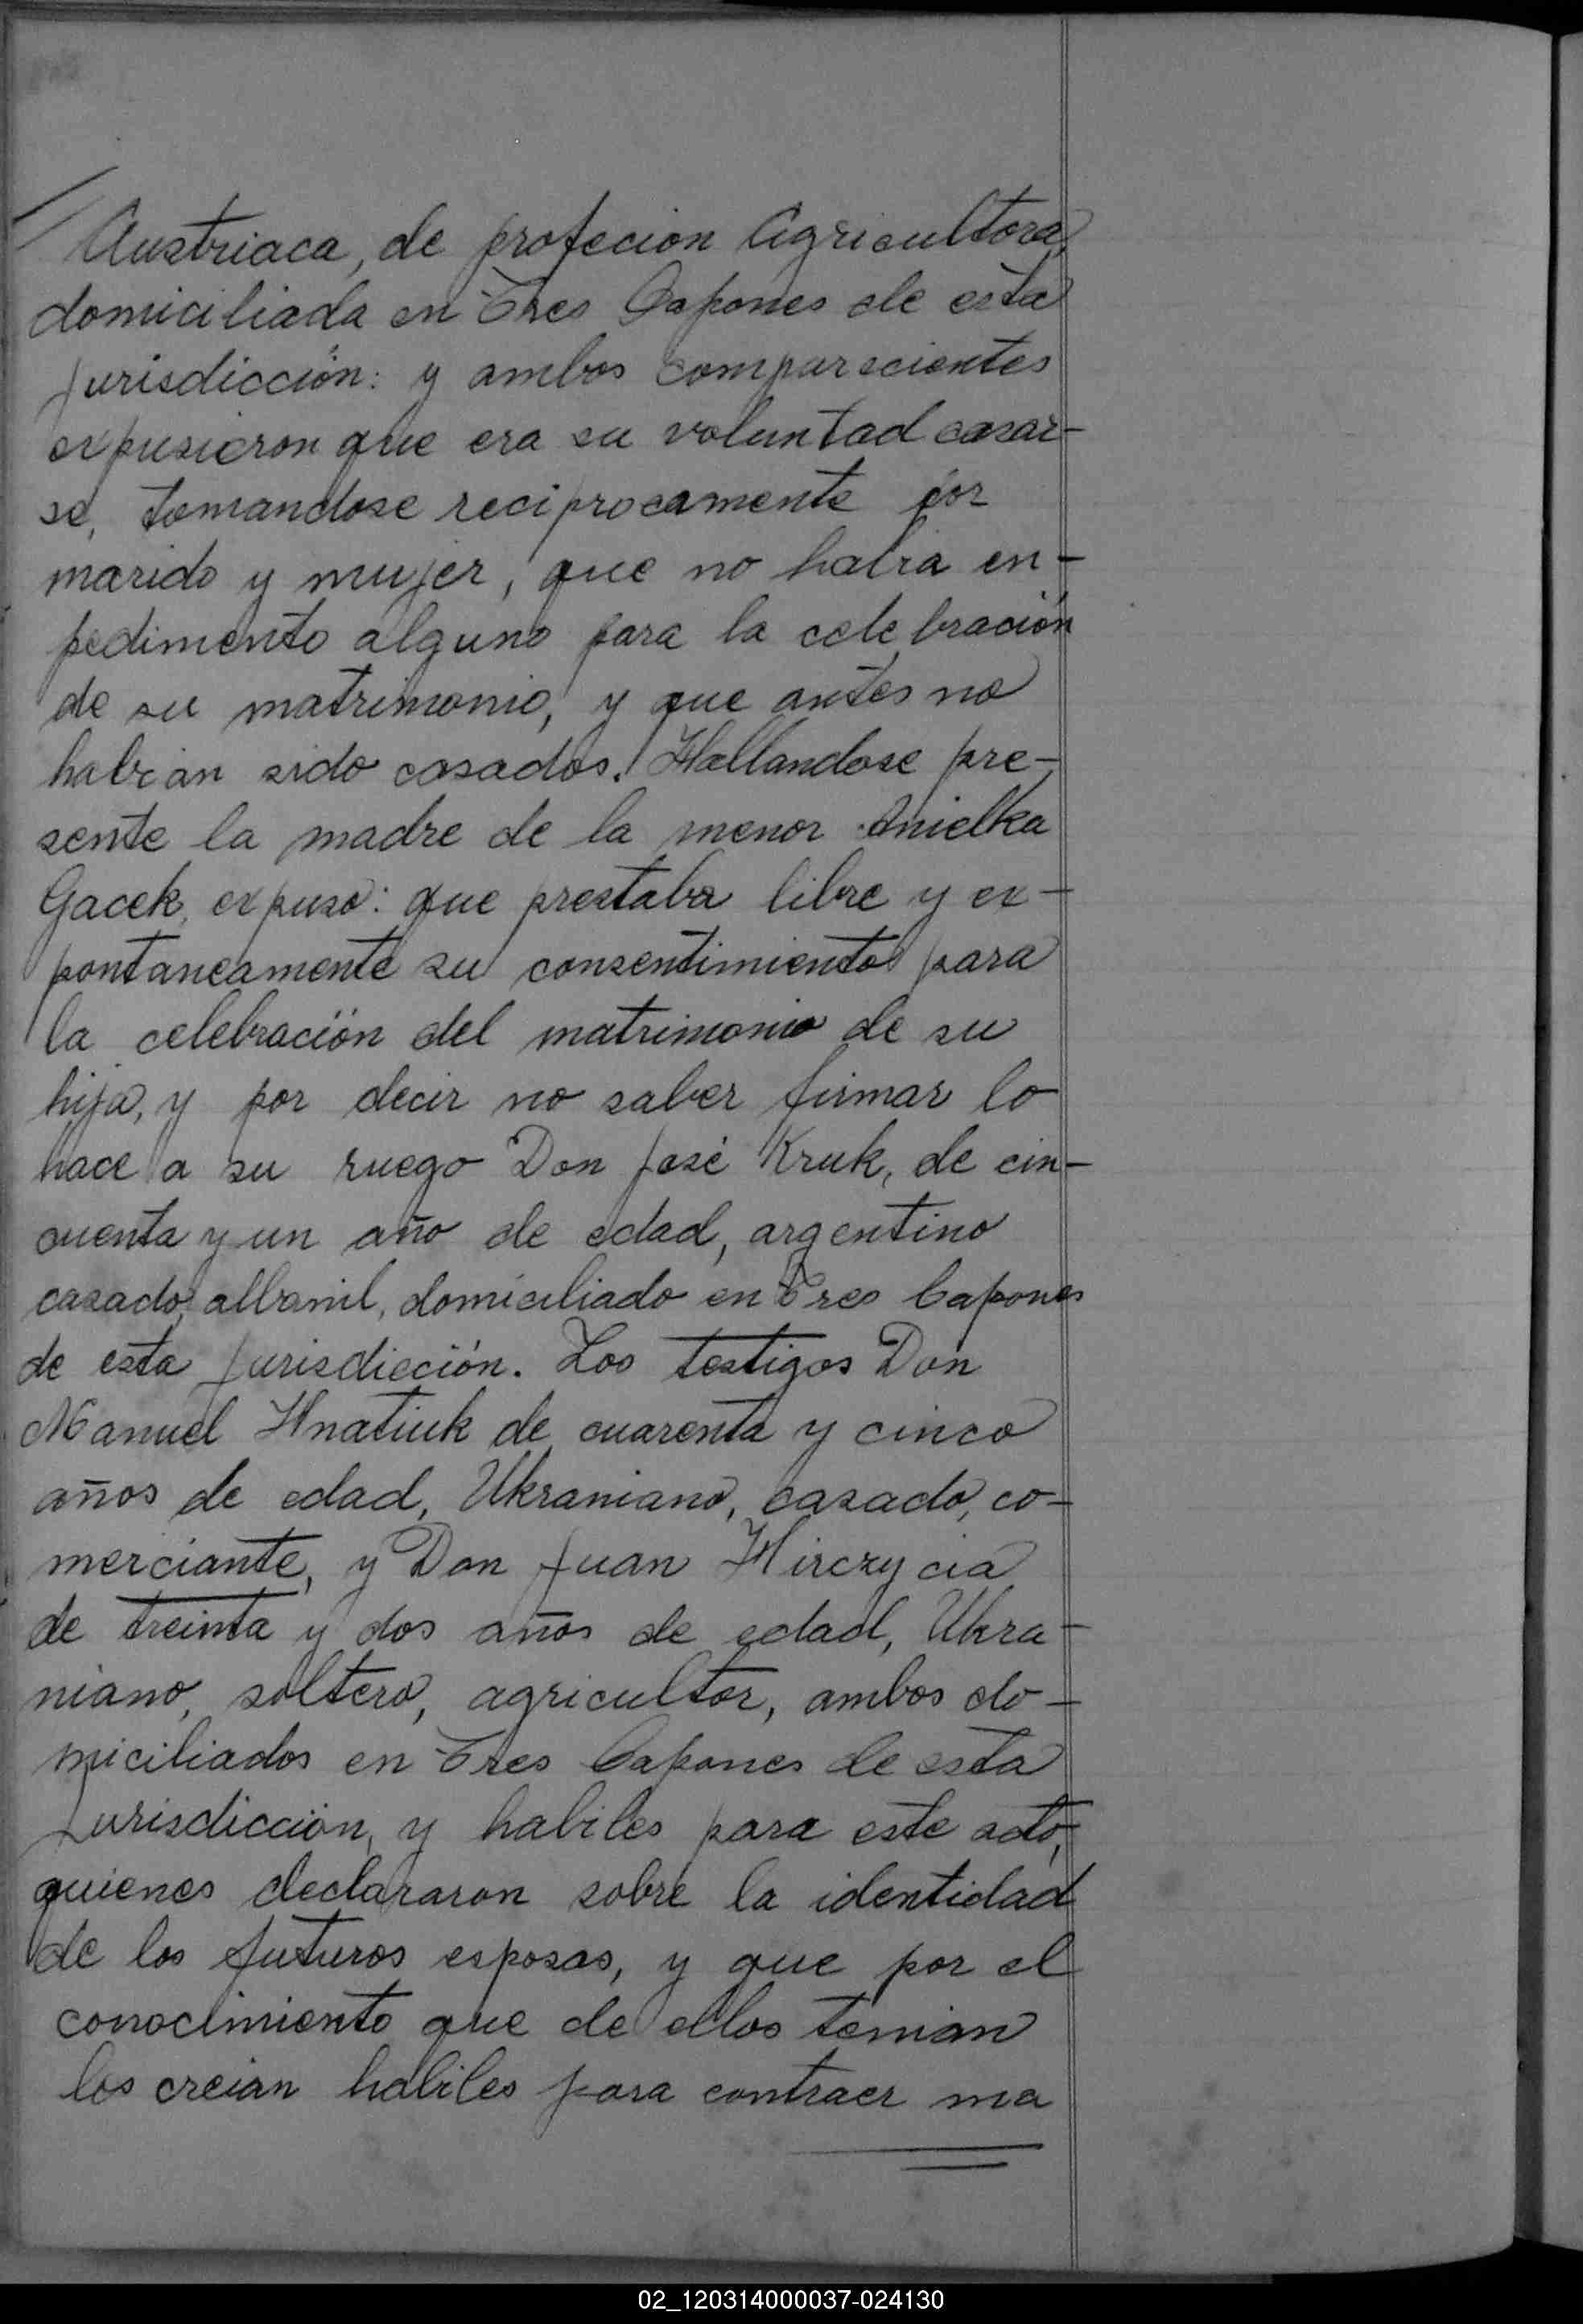 Austriaca, de profecion Agricultora,
domiciliada en Tres Capones de esta
Jurisdicción: y ambos comparecientes
expusieron que era su voluntad casar-
se, tomandose reciprocamente por
marido y mujer, que no habia en-
pedimento alguno para la celebración
de su matrimonio, y que antes no
habian sido casados. Hallandose pre-
sente la madre de la menor Anielka
Gacek, expuso: que prestaba libre y ex-
pontaneamente su consentimiento para
la celebración del matrimonio de su
hija, y por decir no saber firmar lo
hace a su ruego Don José Kruk, de cin-
cuenta y un año de edad, argentino
casado, albanil, domiciliado en Tres Capones
de esta Jurisdicción. Los testigos Don
Manuel Hnatiuk de cuarenta y cinco
años de edad, Ukraniano, casado, co-
merciante, y Don Juan Hirczycia
de treinta y dos años de edad, Ukra-
niano, soltero, agricultor, ambos do-
miciliados en Tres Capones de esta
Jurisdicción, y habiles para este acto,
quienes declararon sobre la identidad
de los futuros esposos, y que por el
conocimiento que de ellos tenian
los creian habiles para contraer ma
02_120314000037-024130